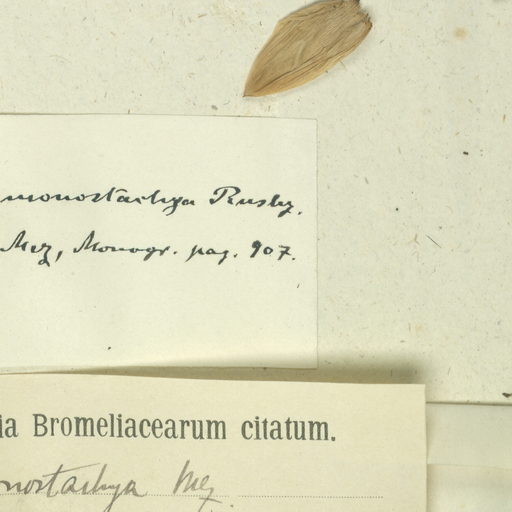 monostachya Rusby.
Mez, Monogr. pag. 907.
ia Bromeliacearum citatum.
nostachya Mez